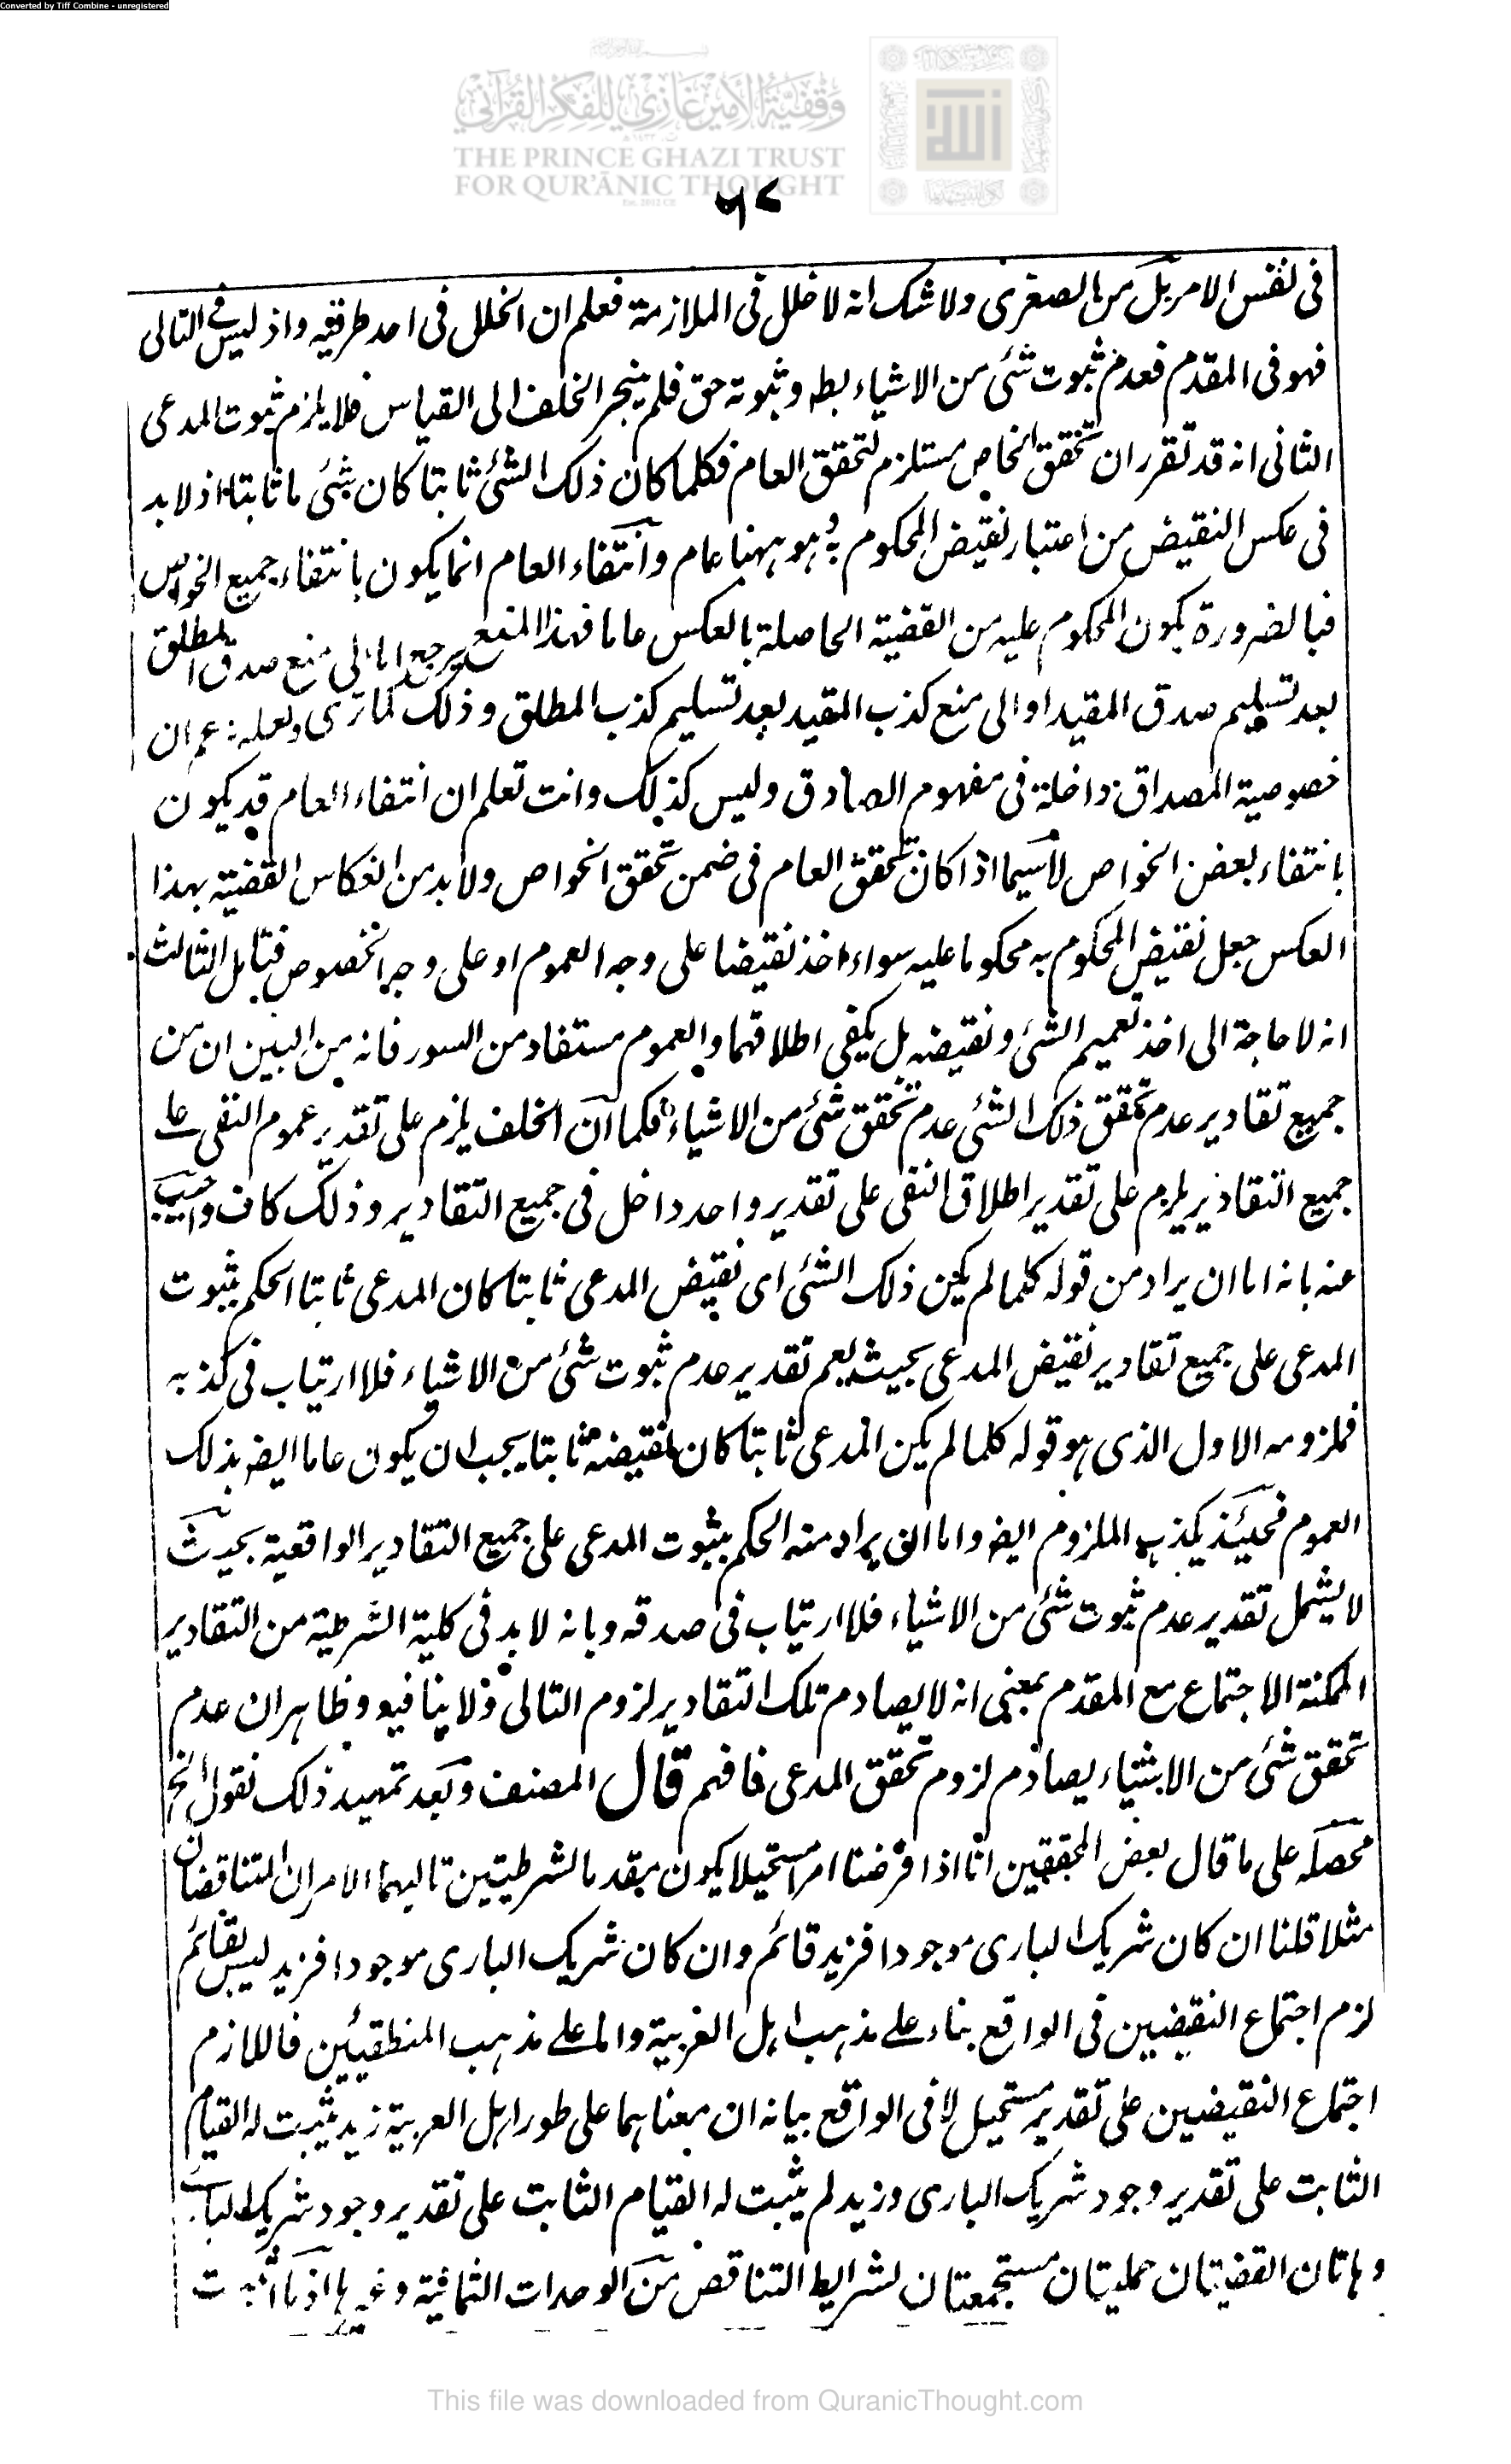 Converted by Tiff Combine - unregistered
وقفية الأمير غازي للفكر القرآني
THE PRINCE GHAZI TRUST
FOR QUR'ĀNIC THOUGHT
Est. 2012 CE
فى نفس الامر بل من الصغرى ولا شك انه لا خلل فى الملازمة فعلم ان الخلل فى احد طرفيه واذ ليس فى التالى
فهو فى المقدم فعدم ثبوت شئ من الاشياء بط وثبوته حق فلم ينجر الخلف الى القياس فلا يلزم ثبوت المدعى
الثانى انه قد تقرر ان تحقق الخاص مستلزم لتحقق العام فكلما كان ذلك الشئ ثابتا كان شئ ما ثابتا اذ لا بد
فى عكس النقيض من اعتبار نقيض المحكوم به وهو ههنا عام وانتفاء العام انما يكون بانتفاء جميع الخواص
فبالضرورة يكون المحكوم عليه من القضية الحاصلة بالعكس عاما فهذا المنع يرجع اما الى منع صدق المطلق
بعد تسليم صدق المقيد او الى منع كذب المقيد بعد تسليم كذب المطلق وذلك كما ترى ولعله زعم ان
خصوصية المصداق داخلة فى مفهوم الصادق وليس كذلك وانت تعلم ان انتفاء العام قد يكون
بانتفاء بعض الخواص لا سيما اذا كان تحقق العام فى ضمن تحقق الخواص ولا بد من انعكاس القضية بهذا
العكس جعل نقيض المحكوم به محكوما عليه سواء اخذ نقيضا على وجه العموم او على وجه الخصوص فتامل الثالث
انه لا حاجة الى اخذ تعميم الشئ ونقيضه بل يكفى اطلاقهما والعموم مستفاد من السور فانه من البين ان من
جميع تقادير عدم تحقق ذلك الشئ عدم تحقق شئ من الاشياء فكما ان الخلف يلزم على تقدير عموم النفى على
جميع التقادير يلزم على تقدير اطلاق النفى على تقدير واحد داخل فى جميع التقادير وذلك كاف واجيب
عنه بانه اما ان يراد من قوله كلما لم يكن ذلك الشئ اى نقيض المدعى ثابتا كان المدعى ثابتا الحكم بثبوت
المدعى على جميع تقادير نقيض المدعى بحيث يعم تقدير عدم ثبوت شئ من الاشياء فلا ارتياب فى كذبه
فملزومه الاول الذى هو قوله كلما لم يكن المدعى ثابتا كان نقيضه ثابتا يجب ان يكون عاما ايض بذلك
العموم فحينئذ يكذب الملزوم ايض واما ان يراد منه الحكم بثبوت المدعى على جميع التقادير الواقعية بحيث
لا يشمل تقدير عدم ثبوت شئ من الاشياء فلا ارتياب فى صدقه وبانه لا بد فى كلية الشرطية من التقادير
الممكنة الاجتماع مع المقدم بمعنى انه لا يصادم تلك التقادير لزوم التالى ولا ينافيه وظاهر ان عدم
تحقق شئ من الاشياء يصادم لزوم تحقق المدعى فافهم قال المصنف وبعد تمهيد ذلك نقول الخ
محصله على ما قال بعض المحققين انا اذا فرضنا امرا مستحيلا يكون مقدما لشرطيتين تاليهما الامران المتناقضان
مثلا قلنا ان كان شريك البارى موجودا فزيد قائم وان كان شريك البارى موجودا فزيد ليس بقائم
لزم اجتماع النقيضين فى الواقع بناء على مذهب اهل العربية واما على مذهب المنطقيين فاللازم
اجتماع النقيضين على تقدير مستحيل لا فى الواقع بيانه ان معناهما على طور اهل العربية زيد يثبت له القيام
الثابت على تقدير وجود شريك البارى وزيد لم يثبت له القيام الثابت على تقدير وجود شريك البارى
وهاتان القضيتان حمليتان مستجمعتان لشرايط التناقض من الوحدات الثمانية وغيرها اذ ما
This file was downloaded from QuranicThought.com